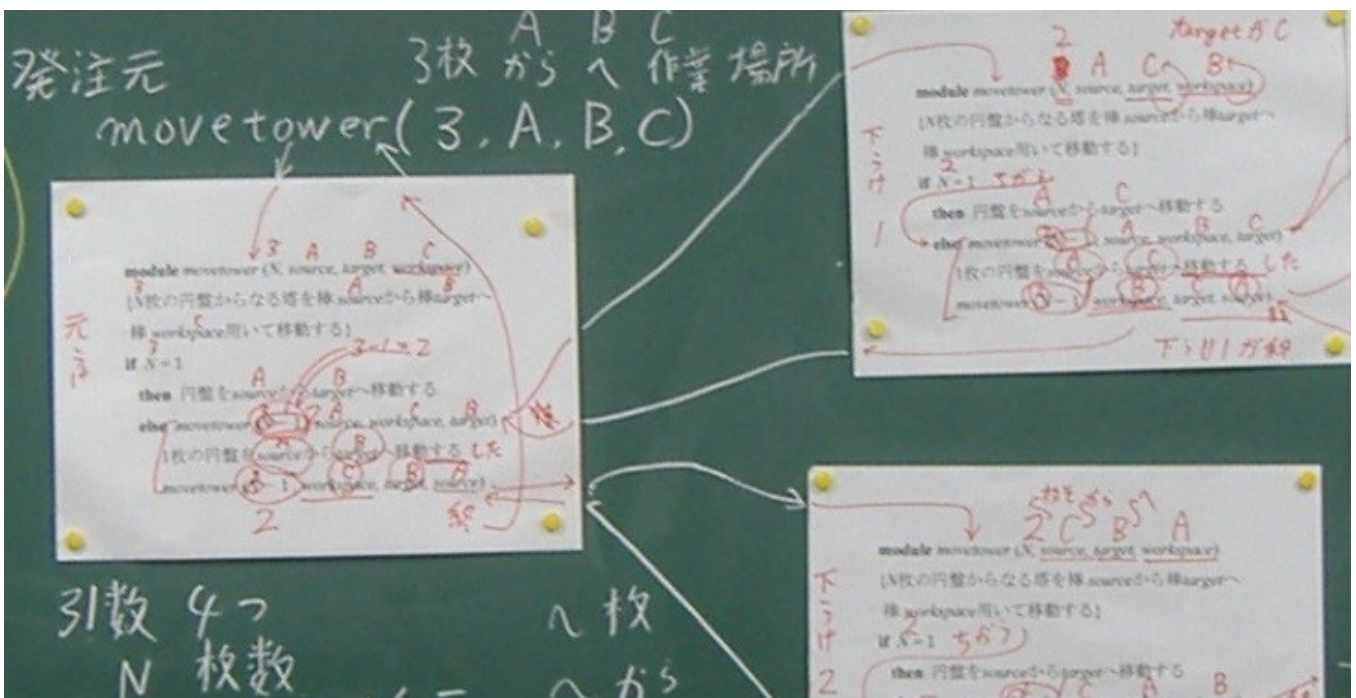 発注元
A B C
3枚 から へ 作業場所
movetower(3, A, B, C)
元うけ
3 A B C
module movetower (N, source, target, workspace)
3 A B
{N枚の円盤からなる塔を棒sourceから棒targetへ
C
棒workspace用いて移動する}
3
if N=1
3-1=2
A B
then 円盤をsourceからtargetへ移動する
2 A C B
else movetower (N-1, source, workspace, target)
A B
1枚の円盤をsourceからtargetへ移動する した
C B A
movetower (N-1, workspace, target, source)
2 終
引数 4つ
N 枚数
へ 枚
へから
targetがC
2 A C B
module movetower (N, source, target, workspace)
{N枚の円盤からなる塔を棒sourceから棒targetへ
棒workspace用いて移動する}
2
if N=1 ちがう
A C
then 円盤をsourceからtargetへ移動する
A B C
else movetower (N-1, source, workspace, target)
A C
1枚の円盤をsourceからtargetへ移動する した
B C A
movetower (N-1, workspace, target, source)
下うけ1が終
下うけ1
から へ
2 C B A
module movetower (N, source, target, workspace)
{N枚の円盤からなる塔を棒sourceから棒targetへ
棒workspace用いて移動する}
2
if N=1 ちがう
then 円盤をsourceからtargetへ移動する
C A B
下うけ2